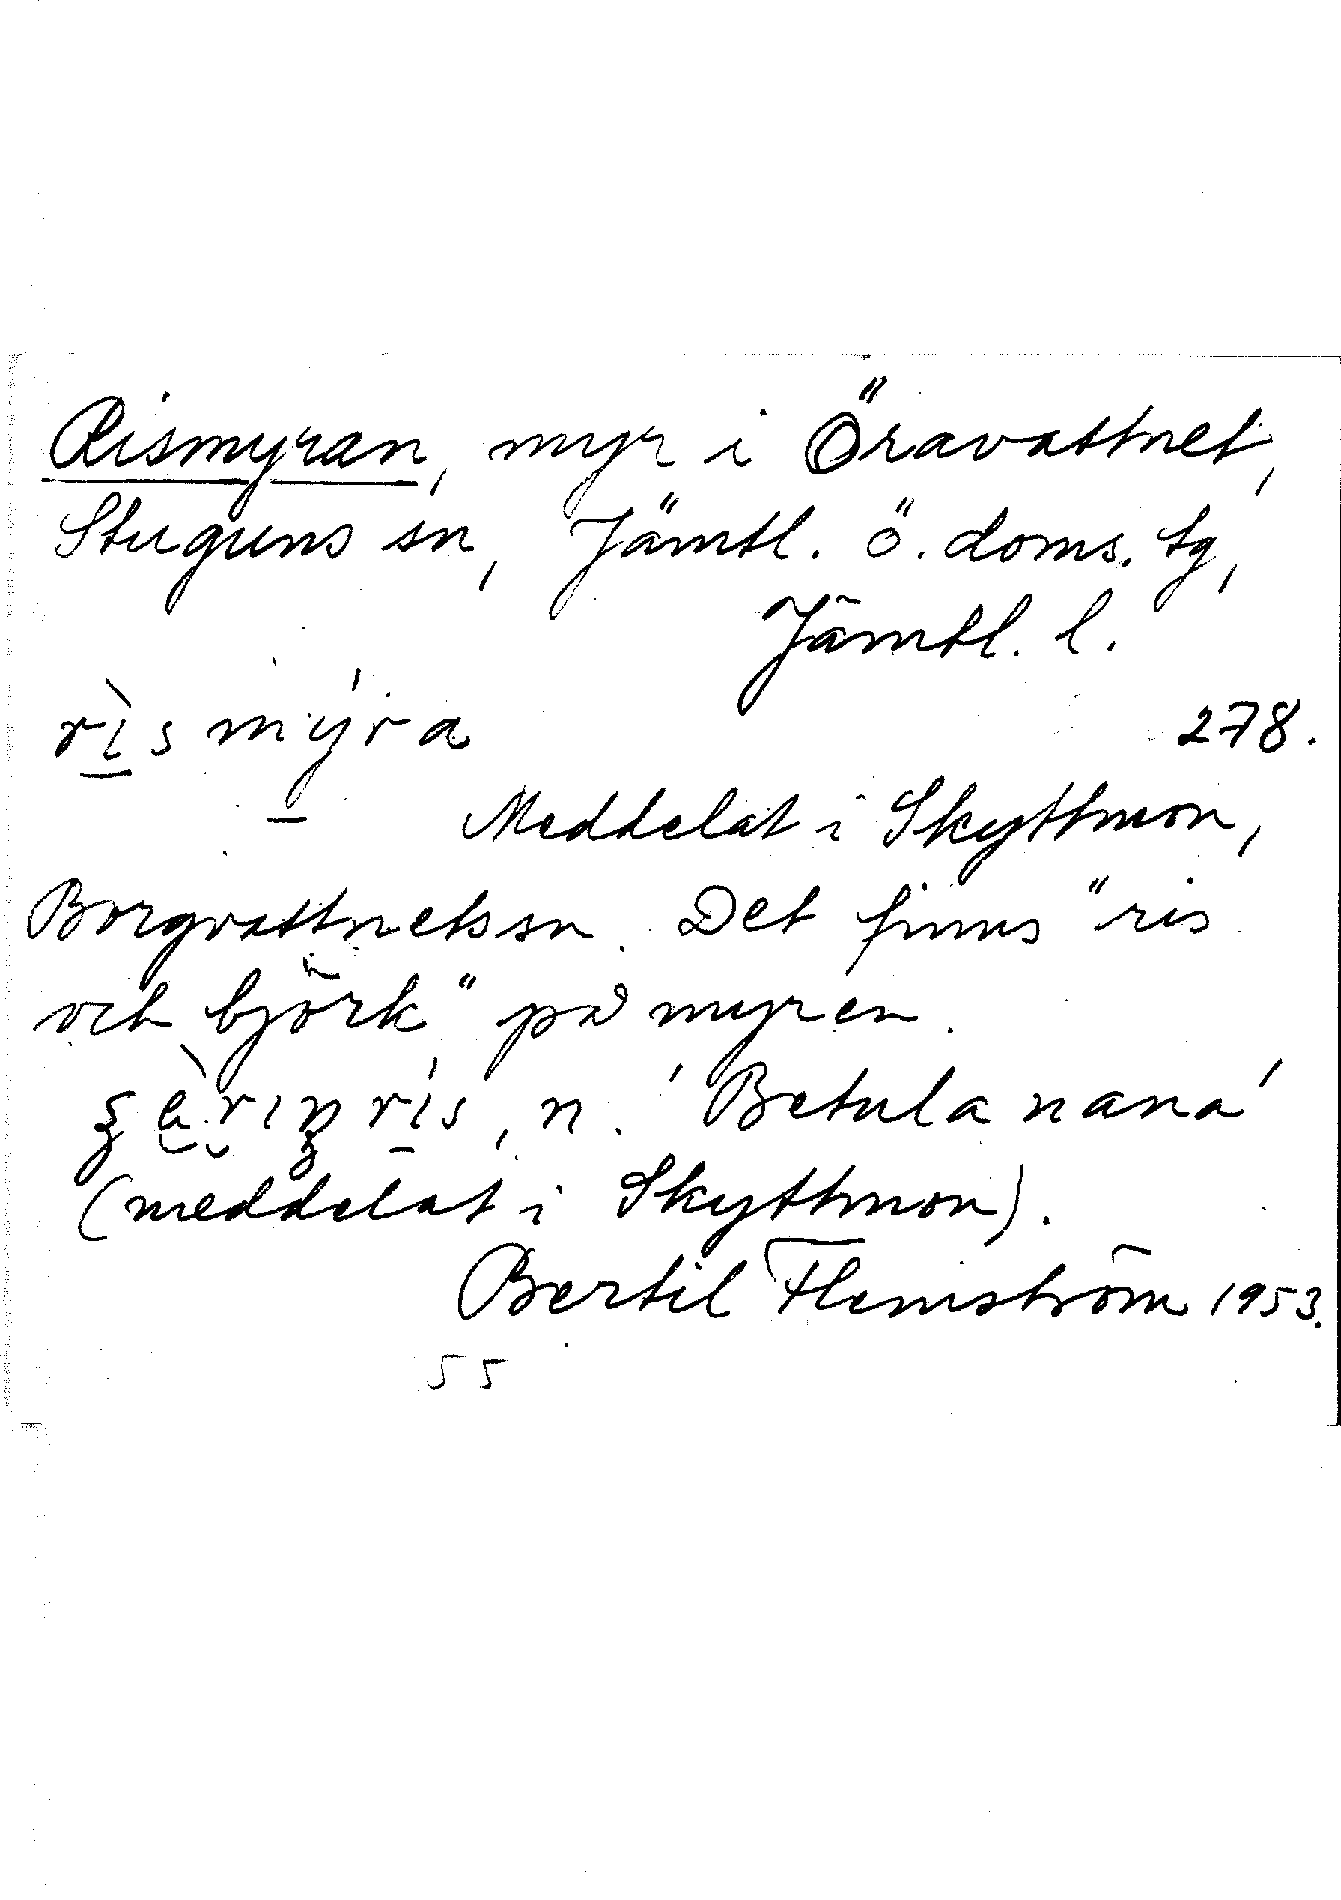 Rismyran, myr i Öravattnet,
Stuguns sn, Jämtl. ö. doms. tg,
Jämtl. l.
rìsmýra
278.
Meddelat i Skyttmon,
Borgvattnets sn. Det finns "ris
och björk" på myren.
rís, n. 'Betula nana'
(meddelat i Skyttmon).
Bertil Flemström 1953.
55